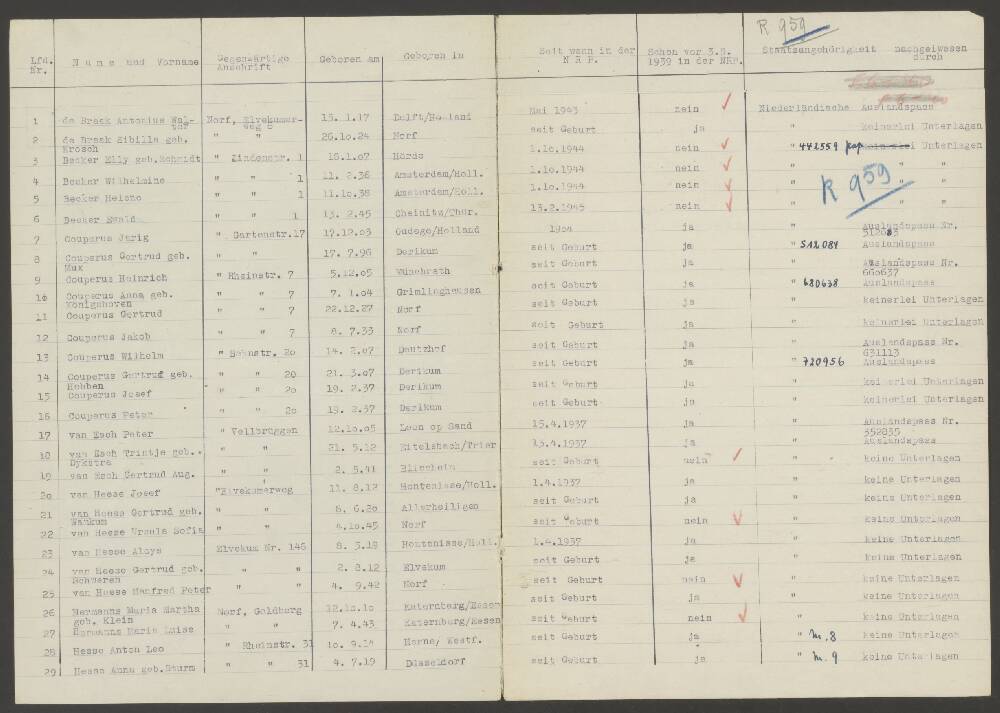 R 959
Lfd. Nr. Name und Vorname Gegenwärtige Anschrift Geboren am Geboren in Seit wann in der NRP. Schon vor 3.9. 1939 in der NRP. Staatsangehörigkeit nachgewiesen durch
1 de Braak Antonius Wal- Norf, Elvekumer- 15. 1.17 Delft/Holland Mai 1943 nein Niederländische Auslandspass
ter weg 6
2 de Braak Sibilla geb. " " 26.10.24 Norf seit Geburt ja " keinerlei Unterlagen
Krosch
3 Becker Elly geb.Schmidt " Lindenstr. 1 16.1.07 Hörde 1.10.1944 nein " 442559 Unterlagen
4 Becker Wilhelmine " " 1 11. 2.36 Amsterdam/Holl. 1.10.1944 nein " " "
5 Becker Helene " " 1 11.10.38 Amsterdam/Holl. 1.10.1944 nein " "
R 959
6 Becker Ewald " " 1 13. 2.45 Cheinitz/Thür. 13.2.1945 nein " " "
7 Couperus Jarig " Gartenstr.17 17.12.03 Oudege/Holland ja " Auslandspass Nr.
8 Couperus Gertrud geb. 17. 7.96 Derikum seit Geburt ja " 542084 Auslandspass
Mux
9 Couperus Heinrich " Rheinstr. 7 5.12.05 seit Geburt ja " Auslandspass Nr.
660637
10 Couperus Anna geb. " " 7 7. 1.04 Grimlinghausen seit Geburt ja " 680638 Auslandspass
Königshoven
11 Couperus Gertrud " " 7 22.12.27 Norf seit Geburt ja " keinerlei Unterlagen
12 Couperus Jakob " " 7 8. 7.33 Norf seit Geburt ja " keinerlei Unterlagen
13 Couperus Wilhelm " Bahnstr. 20 14. 2.07 Deutzhof seit Geburt ja " Auslandspass Nr.
G31113
14 Couperus Gertrud geb. " " 20 21. 3.07 Derikum seit Geburt ja " 720956 Auslandspass
Hobben
15 Couperus Josef " " 20 19. 2.37 Derikum seit Geburt ja " keinerlei Unterlagen
16 Couperus Peter " " 20 19. 2.37 Derikum seit Geburt ja " keinerlei Unterlagen
17 van Esch Peter " Vellbrüggen 12.10.05 Loon op Sand 15.4.1937 ja " Auslandspass Nr.
352835
18 van Esch Trintje geb. " " 21. 5.12 Eitelsbach/Trier 15.4.1937 ja " Auslandspass
Dykstra
19 van Esch Gertrud Aug. " " 2. 5.41 seit Geburt nein " keine Unterlagen
20 van Heese Josef " Elvekumerweg 11. 8.12 Hontenisse/Holl. 1.4.1937 ja " keine Unterlagen
21 van Heese Gertrud geb. " " 8. 6.20 Allerheiligen seit Geburt ja " keine Unterlagen
Wankum
22 van Heese Ursula Sofia " " 4.10.45 Norf seit Geburt nein " keine Unterlagen
23 van Heese Aloys Elvekum Nr. 146 8. 5.19 Hontenisse/Holl. 1.4.1937 ja " keine Unterlagen
24 van Heese Gertrud geb. " " 2. 8.12 Elvekum seit Geburt ja " keine Unterlagen
Schweren
25 van Heese Manfred Peter " " 4. 9.42 Norf seit Geburt nein " keine Unterlagen
26 Hermanns Maria Martha Norf, Goldburg 12.10.10 Katernberg/Essen seit Geburt ja " keine Unterlagen
geb. Klein
27 Hermanns Maria Luise " " 7. 4.43 Katernberg/Essen seit Geburt nein " keine Unterlagen
28 Hesse Anton Leo " Rheinstr. 31 10. 9.14 Herne, Westf. seit Geburt ja " m. 8 keine Unterlagen
29 Hesse Anna geb.Sturm " " 31 4. 7.19 Düsseldorf seit Geburt ja " m. 9 keine Unterlagen